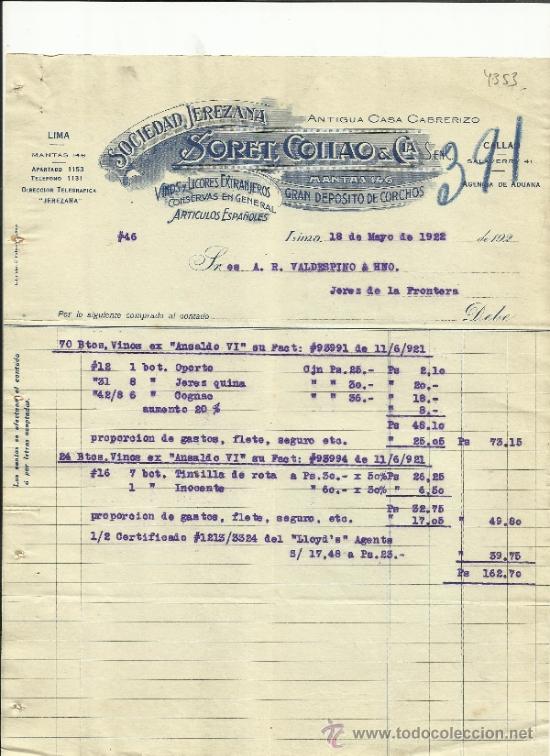 4353
SOCIEDAD JEREZANA
ANTIGUA CASA CABRERIZO
SORET, COLLAO & CIA S. en C.
MANTAS 146
LIMA
MANTAS 146
APARTADO 1153
TELEFONO 1131
DIRECCION TELEGRAFICA
"JEREZANA"
VINOS y LICORES EXTRANJEROS
CONSERVAS EN GENERAL
ARTICULOS ESPAÑOLES
GRAN DEPOSITO DE CORCHOS
CALLAO
SALAVERRY 41
AGENCIA DE ADUANA
391
#46
Lima, 18 de Mayo de 1922 de 192
Sres A. R. VALDESPINO & HNO.
Jerez de la Frontera
Por lo siguiente comprado al contado Debe
Las ventas se efectúan al contado
ó por letras aceptadas.
70 Btos. Vinos ex "Ansaldo VI" su Fact: #93991 de 11/6/921
#12 1 bot. Oporto Cjn Ps.25.- Ps 2,10
"31 8 " Jerez quina " " 30.- " 20.-
"42/8 6 " Cognac " " 36.- " 18.-
aumento 20 % " 8.-
Ps 48.10
proporcion de gastos, flete, seguro etc. " 25.05 Ps 73.15
24 Btos. Vinos ex "Ansaldo VI" su Fact: #93994 de 11/6/921
#16 7 bot. Tintilla de rota a Ps.30.- x 50% Ps 26,25
1 " Inocente " 60.- x 30% " 6,50
Ps 32.75
proporcion de gastos, flete, seguro, etc. " 17.05 " 49.80
1/2 Certificado #1213/3324 del "Lloyd's" Agents
S/ 17,48 a Ps.23.- " 39.75
Ps 162.70
todocoleccion
www.todocoleccion.net